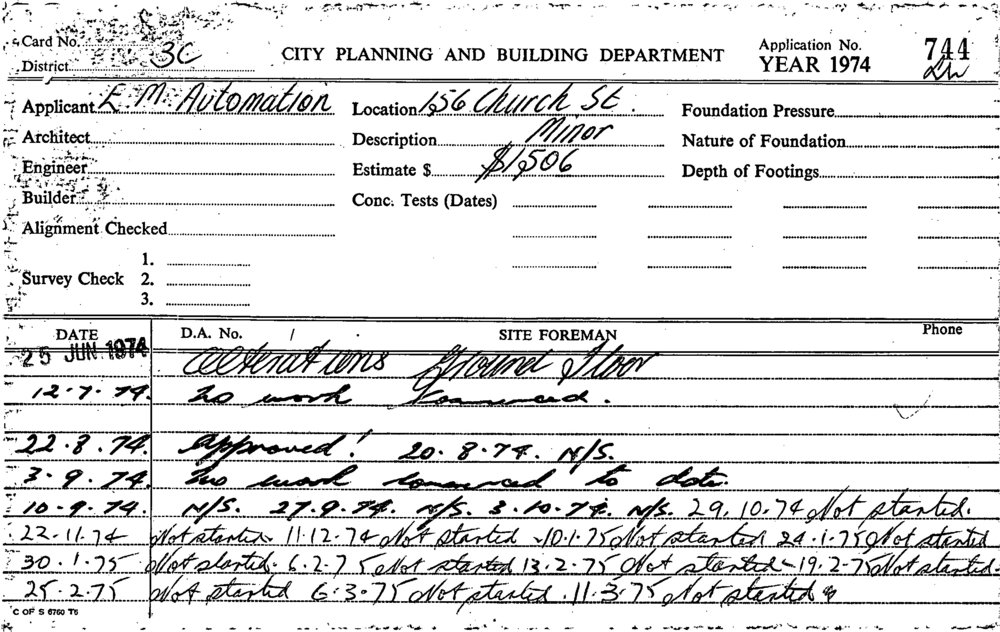 Card No. Application No. 744
District 3C CITY PLANNING AND BUILDING DEPARTMENT YEAR 1974
Applicant E. M. Automation Location 156 Church St. Foundation Pressure
Architect Description Minor Nature of Foundation
Engineer Estimate $ $1,506 Depth of Footings
Builder Conc. Tests (Dates)
Alignment Checked
1.
Survey Check 2.
3.
DATE D.A. No. / SITE FOREMAN Phone
25 JUN 1974 alterations Ground Floor
12.7.74. No work Commenced.
22.8.74. Approved! 20.8.74. N/S.
3.9.74. No work commenced to date.
10.9.74. N/S. 27.9.74. N/S. 3.10.74. N/S. 29.10.74 Not started.
22-11-74 Not started 11.12.74 Not started -10.1.75 Not started 24.1.75 Not started
30.1.75 Not started. 6.2.75 Not started 13.2.75 Not started -19.2.75 Not started.
25.2.75 Not started 6.3.75 Not started. 11.3.75 Not started
C OF S 6760 T6